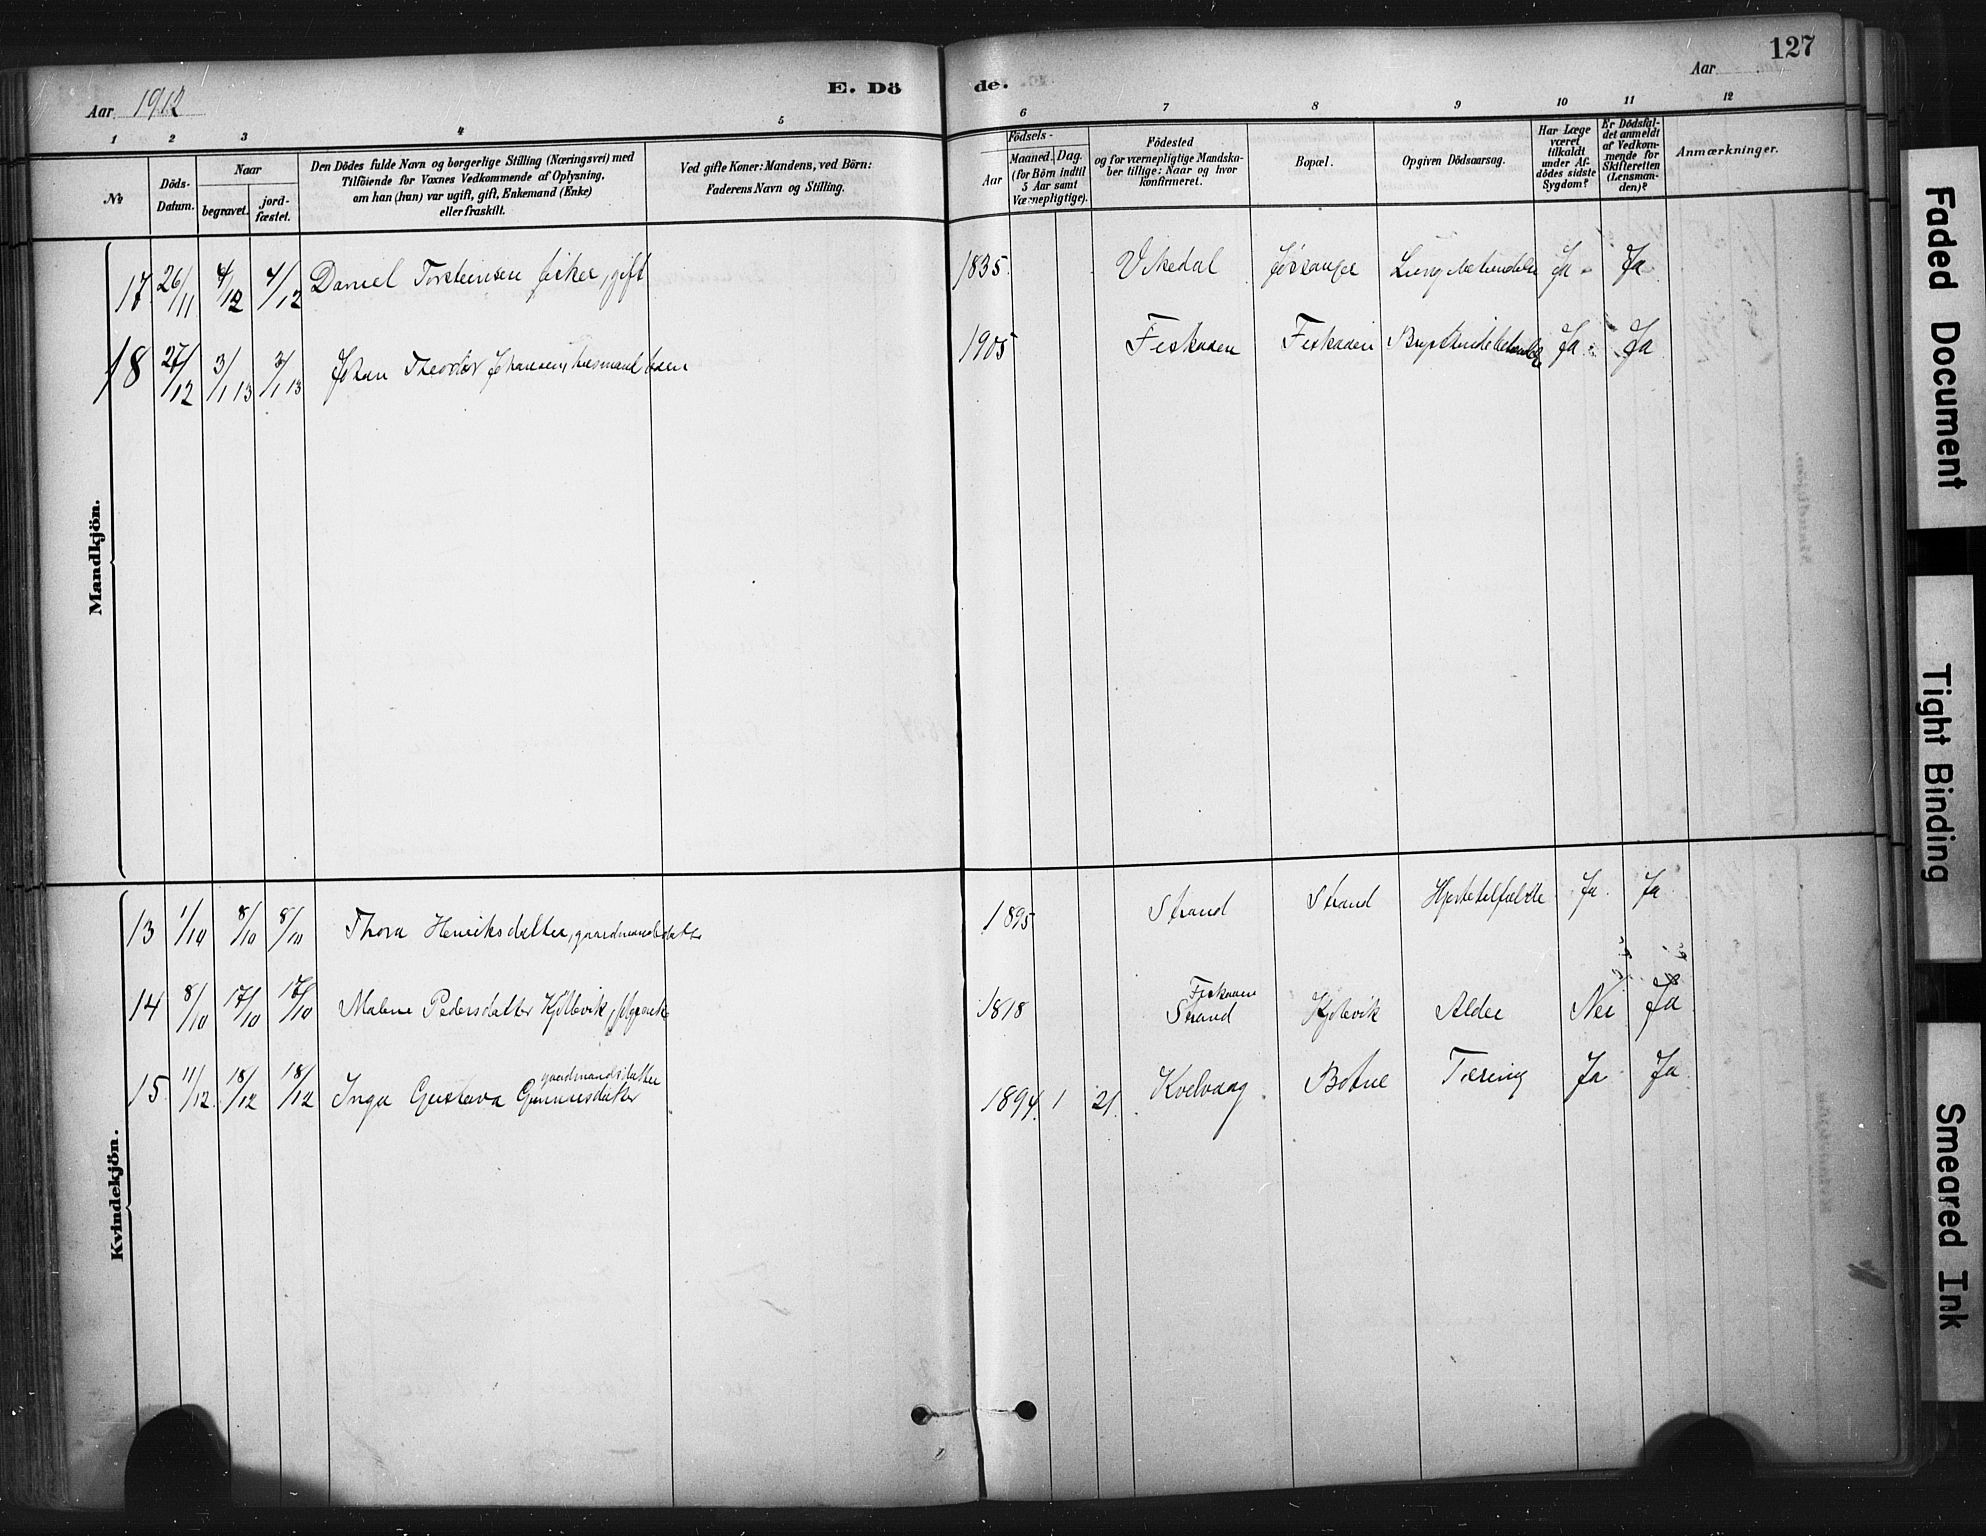 127
E. Dö de.
Aar 1912
Aar
1 2 3 4 5 6 7 8 9 10 11 12
No
Döds-Datum.
Naar
begravet.
jord-fæstet.
Den Dödes fulde Navn og borgerlige Stilling (Næringsvei) med
Tilföiende for Voxnes Vedkommende af Oplysning,
om han (hun) var ugift, gift, Enkemand (Enke)
eller fraskilt.
Ved gifte Koner: Mandens, ved Börn:
Faderens Navn og Stilling.
Födsels-
Aar
Maaned. Dag.
(for Börn indtil
5 Aar samt
Værnepligtige).
Födested
og for værnepligtige Mandska-
ber tillige: Naar og hvor
konfirmeret.
Bopæl.
Opgiven Dödsaarsag.
Har Læge
været
tilkaldt
under Af-
dödes sidste
Sygdom?
Er Dödsfal-
det anmeldt
af Vedkom-
mende for
Skifteretten
(Lensman-
den)?
Anmærkninger.
Mandkjön.
17 26/11 4/12 4/12 Daniel Torsteinsen fisker, gift 1835 Vikedal Jössang Ja Ja
18 27/12 3/1 13 3/1 13 Johan Theodor Johansen, husmandssøn 1905 Fiskaaen Fiskaaen Brysthindebetændelse Ja Ja
Kvindekjön.
13 1/10 8/10 8/10 Thora Henriksdatter, gaardmandsdatter 1895 Strand Strand Hjertetilfælde Ja Ja
14 8/10 17/10 17/10 Malene Pedersdatter Kjölevik, 1818 Fiskaaen
Strand Kjölevik Alder Nei Ja
15 11/12 18/12 18/12 Inga Gustava Gunnesdatter gaardmandsdatter 1894. 1 21. Kvelvaag Botne Tæring Ja Ja
Faded Document
Tight Binding
Smeared Ink